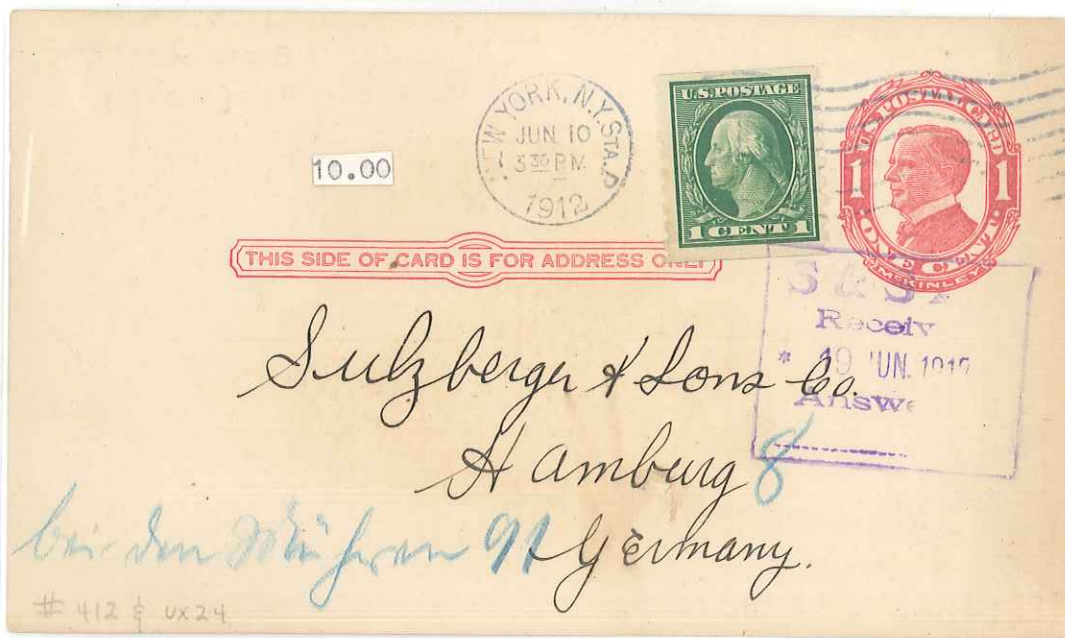 NEW YORK, N.Y. STA. P
JUN 10
3 30 PM
1912
U.S. POSTAGE
1 CENT 1
U.S. POSTAL CARD
1 1
ONE CENT
McKINLEY
10.00
THIS SIDE OF CARD IS FOR ADDRESS ONLY
S & S
Receiv
* 19 JUN. 1912
Answe
Sulzberger & Sons Co.
Hamburg 8
bei den Mühren 91
Germany.
# 412 & UX24